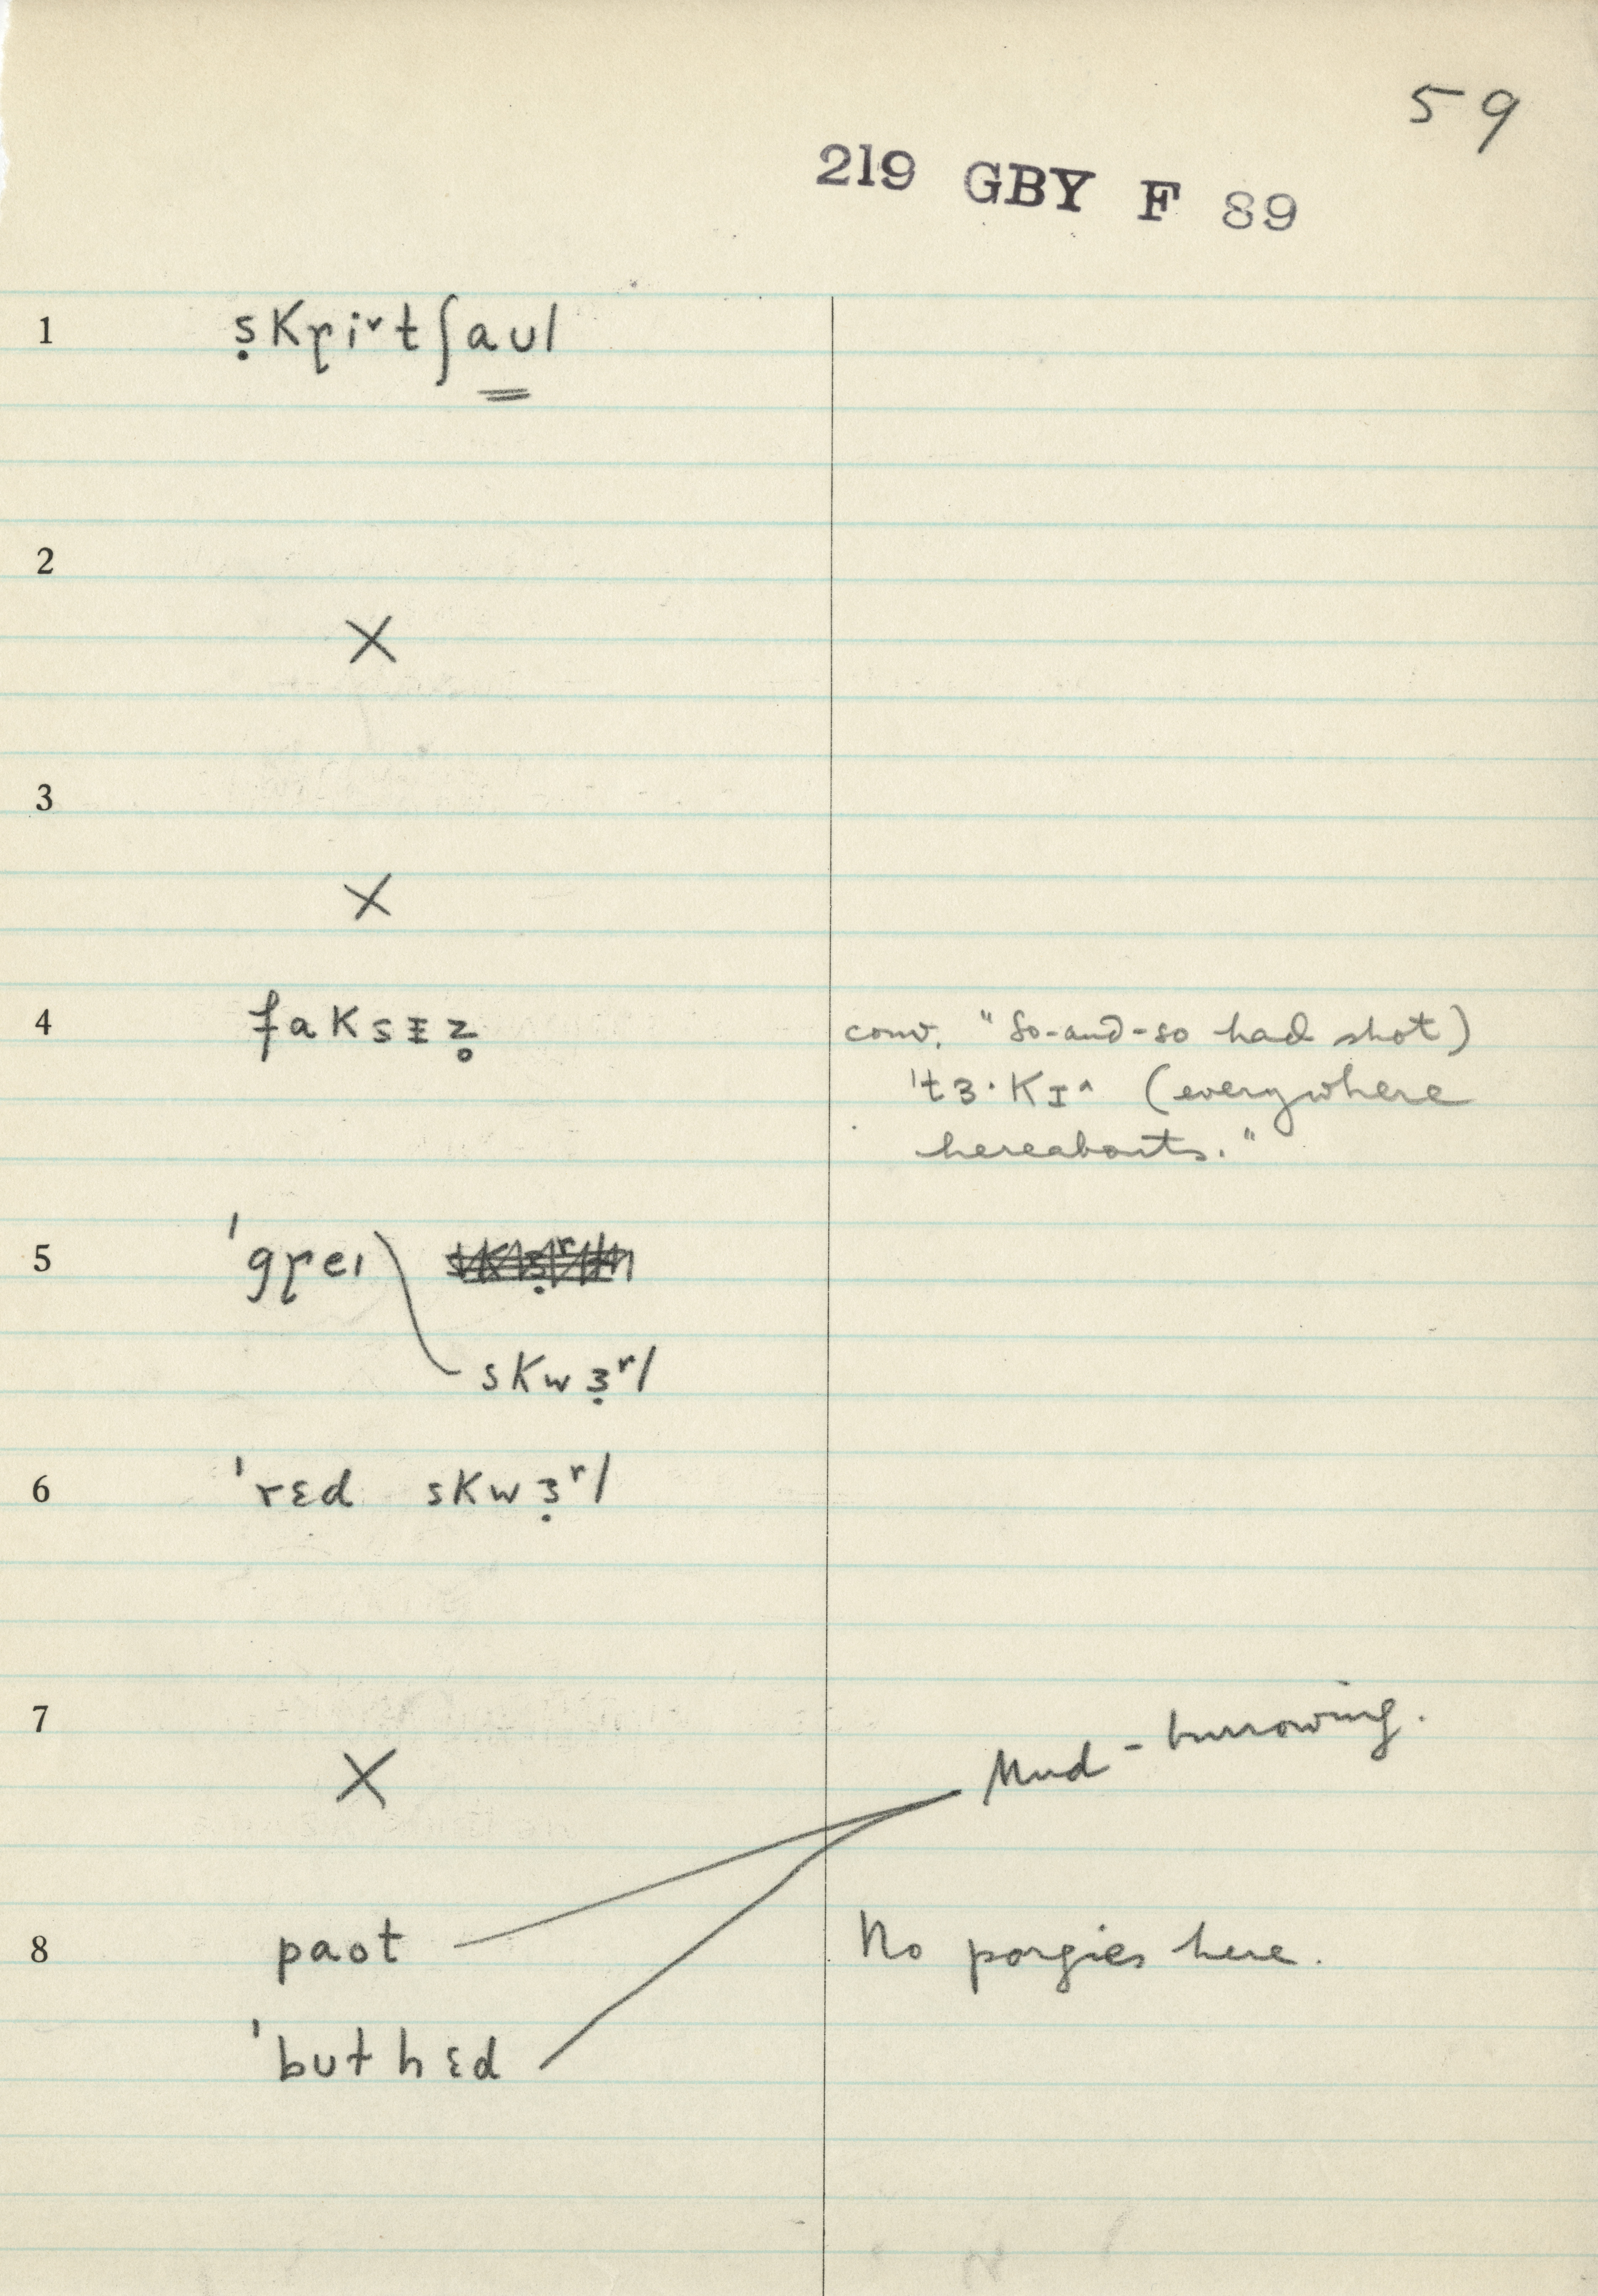 59
219 GBY F 89
1 ṣkɽiˇtʃaul
2
X
3
X
4 faksɪz̥
conv. "So-and-so had shot)
'tɜ·kɪ^ (everywhere
hereabouts."
5 'gɽeɪ
skwɜ̣ʳl
6 'rɛd skwɜ̣ʳl
7
X
Mud-burrowing.
8 paot
No porgies here.
'buthɛd